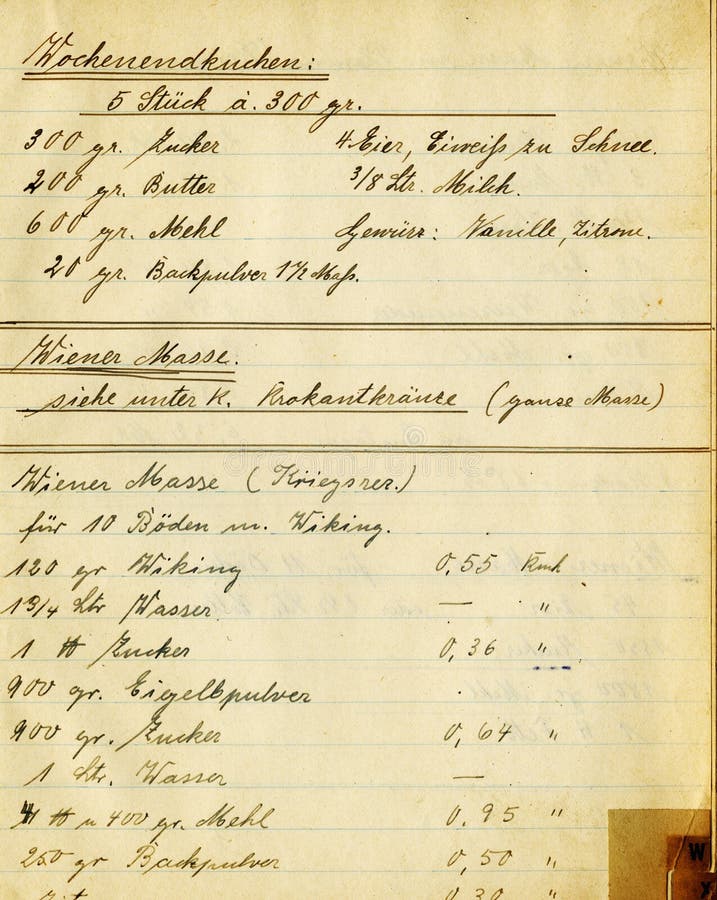 Wochenendkuchen:
5 Stück á. 300 gr.
300 gr. Zucker 4 Eier, Eiweiß zu Schnee.
200 gr. Butter 3/8 Ltr. Milch.
600 gr. Mehl Gewürz: Vanille, Zitrone.
20 gr. Backpulver 1 1/2 Mass.
Wiener Masse.
siehe unter K. Krokantkränze (ganze Masse)
Wiener Masse (Kriegsrez.)
für 10 Böden m. Wiking.
120 gr Wiking 0,55 Rmk
1 3/4 Ltr Wasser. — "
1 ℔ Zucker 0,36 "
900 gr. Eigelbpulver .
900 gr. Zucker 0,64 "
1 Ltr. Wasser —
4 ℔ u 400 gr. Mehl 0.95 "
250 gr Backpulver 0,50 "
0 30 "
W
X
dreamstime